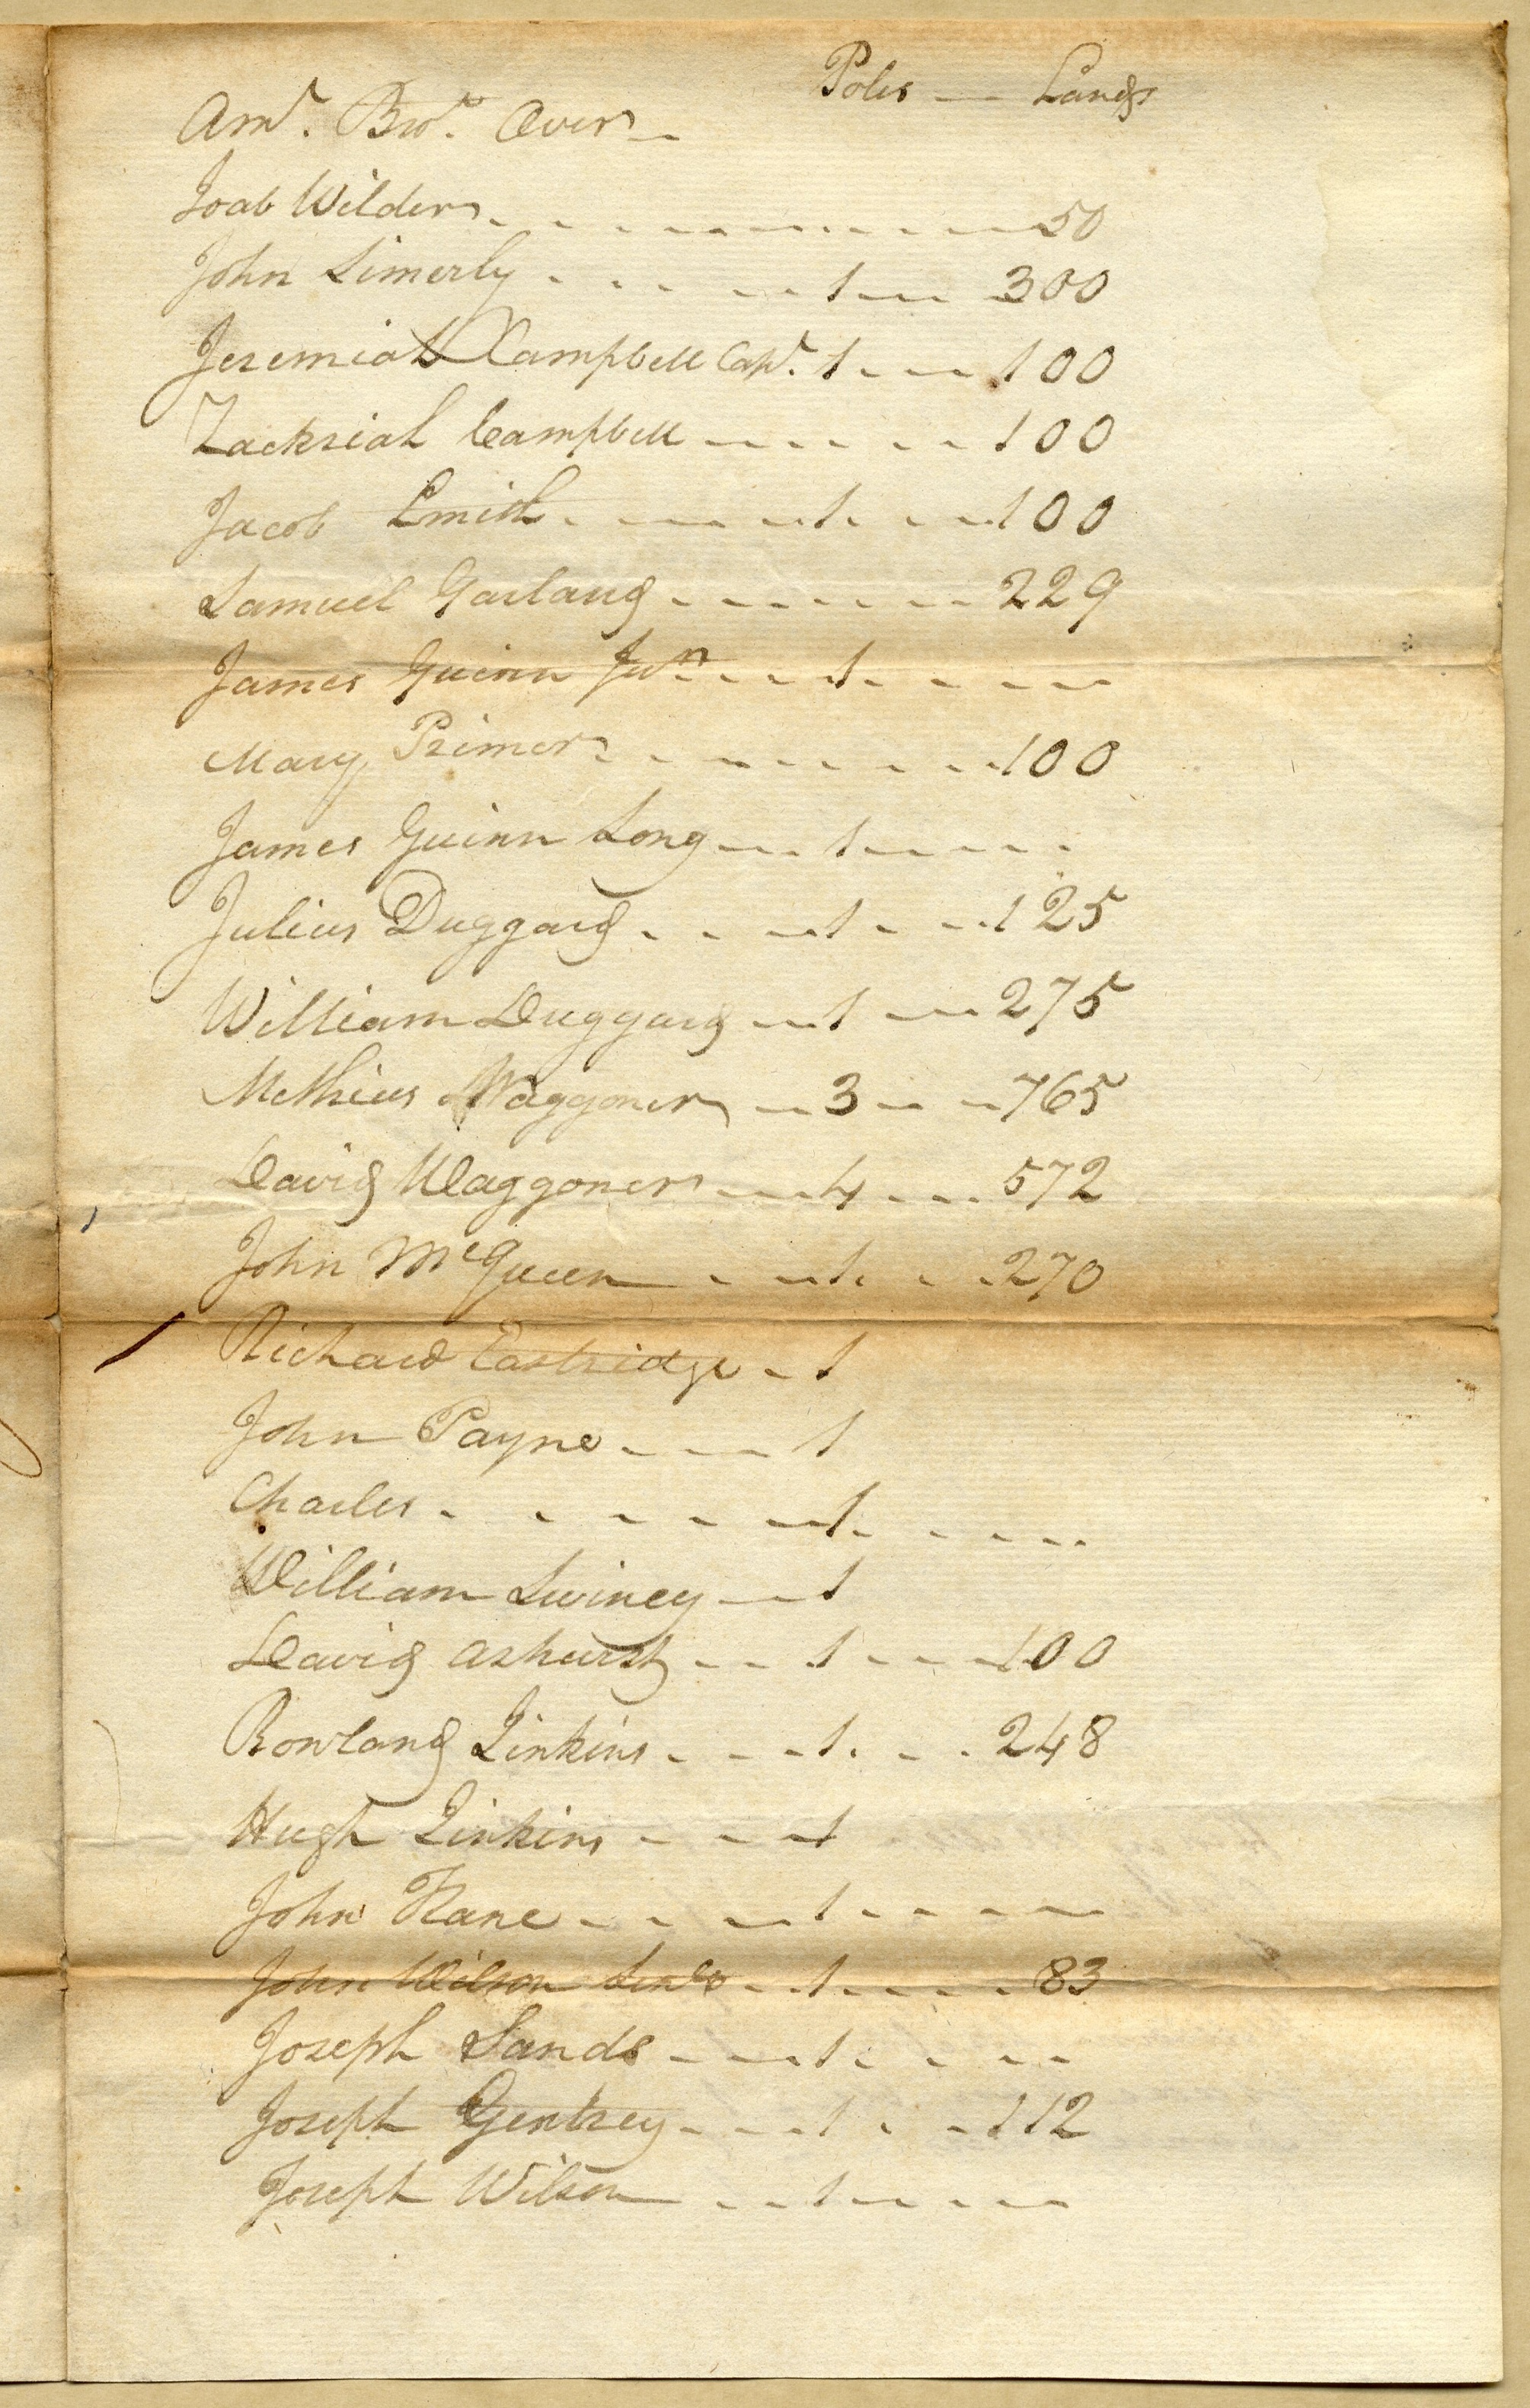 Poles — Lands
Amt. Brot. Over
Joab Wilder 50
John Simerly 1 300
Jeremiah Campbell Capt. 1 100
Zackriah Campbell 100
Jacob Smith 1 100
Samuel Garland 229
James Guinn Junr 1
Mary Primer 100
James Guinn Long 1
Julius Duggard 1 125
William Duggard 1 275
Methius Waggoner 3 765
David Waggoner 4 572
John McQueen 1 270
Richard Eastridge 1
John Payne 1
Charles 1
William Swiney 1
David Ashurst 1 100
Rowland Jinkins 1 248
Hugh Jinkins 1
John Kane 1
John Wilson 1 83
Joseph Sands 1
Joseph Gentrey 1 112
Joseph Wilson 1